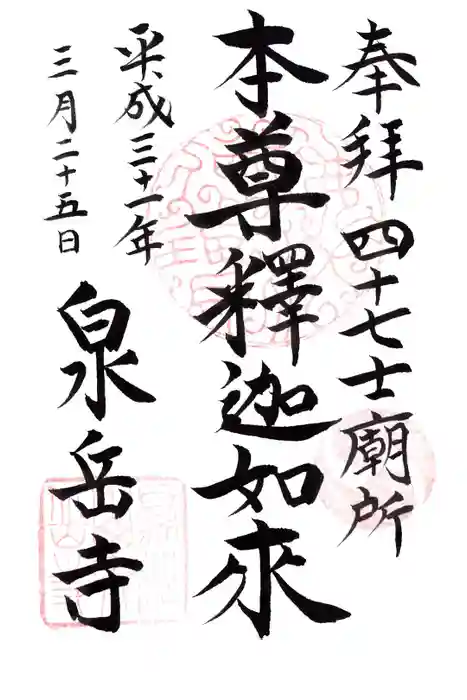 奉拝 四十七士廟所
本尊釋迦如来
平成三十一年
三月二十五日
泉岳寺